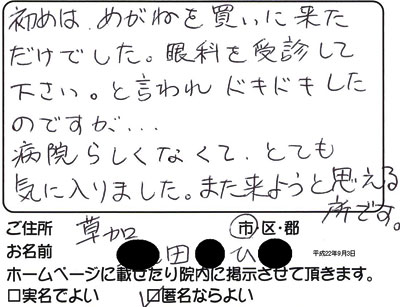 初めは、めがねを買いに来た
だけでした。眼科を受診して
下さい。と言われ ドキドキした
のですが、...
病院らしくなくて、とても
気に入りました。また来ようと思える
所です。
ご住所 草加 市・区・郡
お名前 田 ひ 平成22年9月3日
ホームページに載せたり院内に掲示させて頂きます。
□実名でよい ☑匿名ならよい